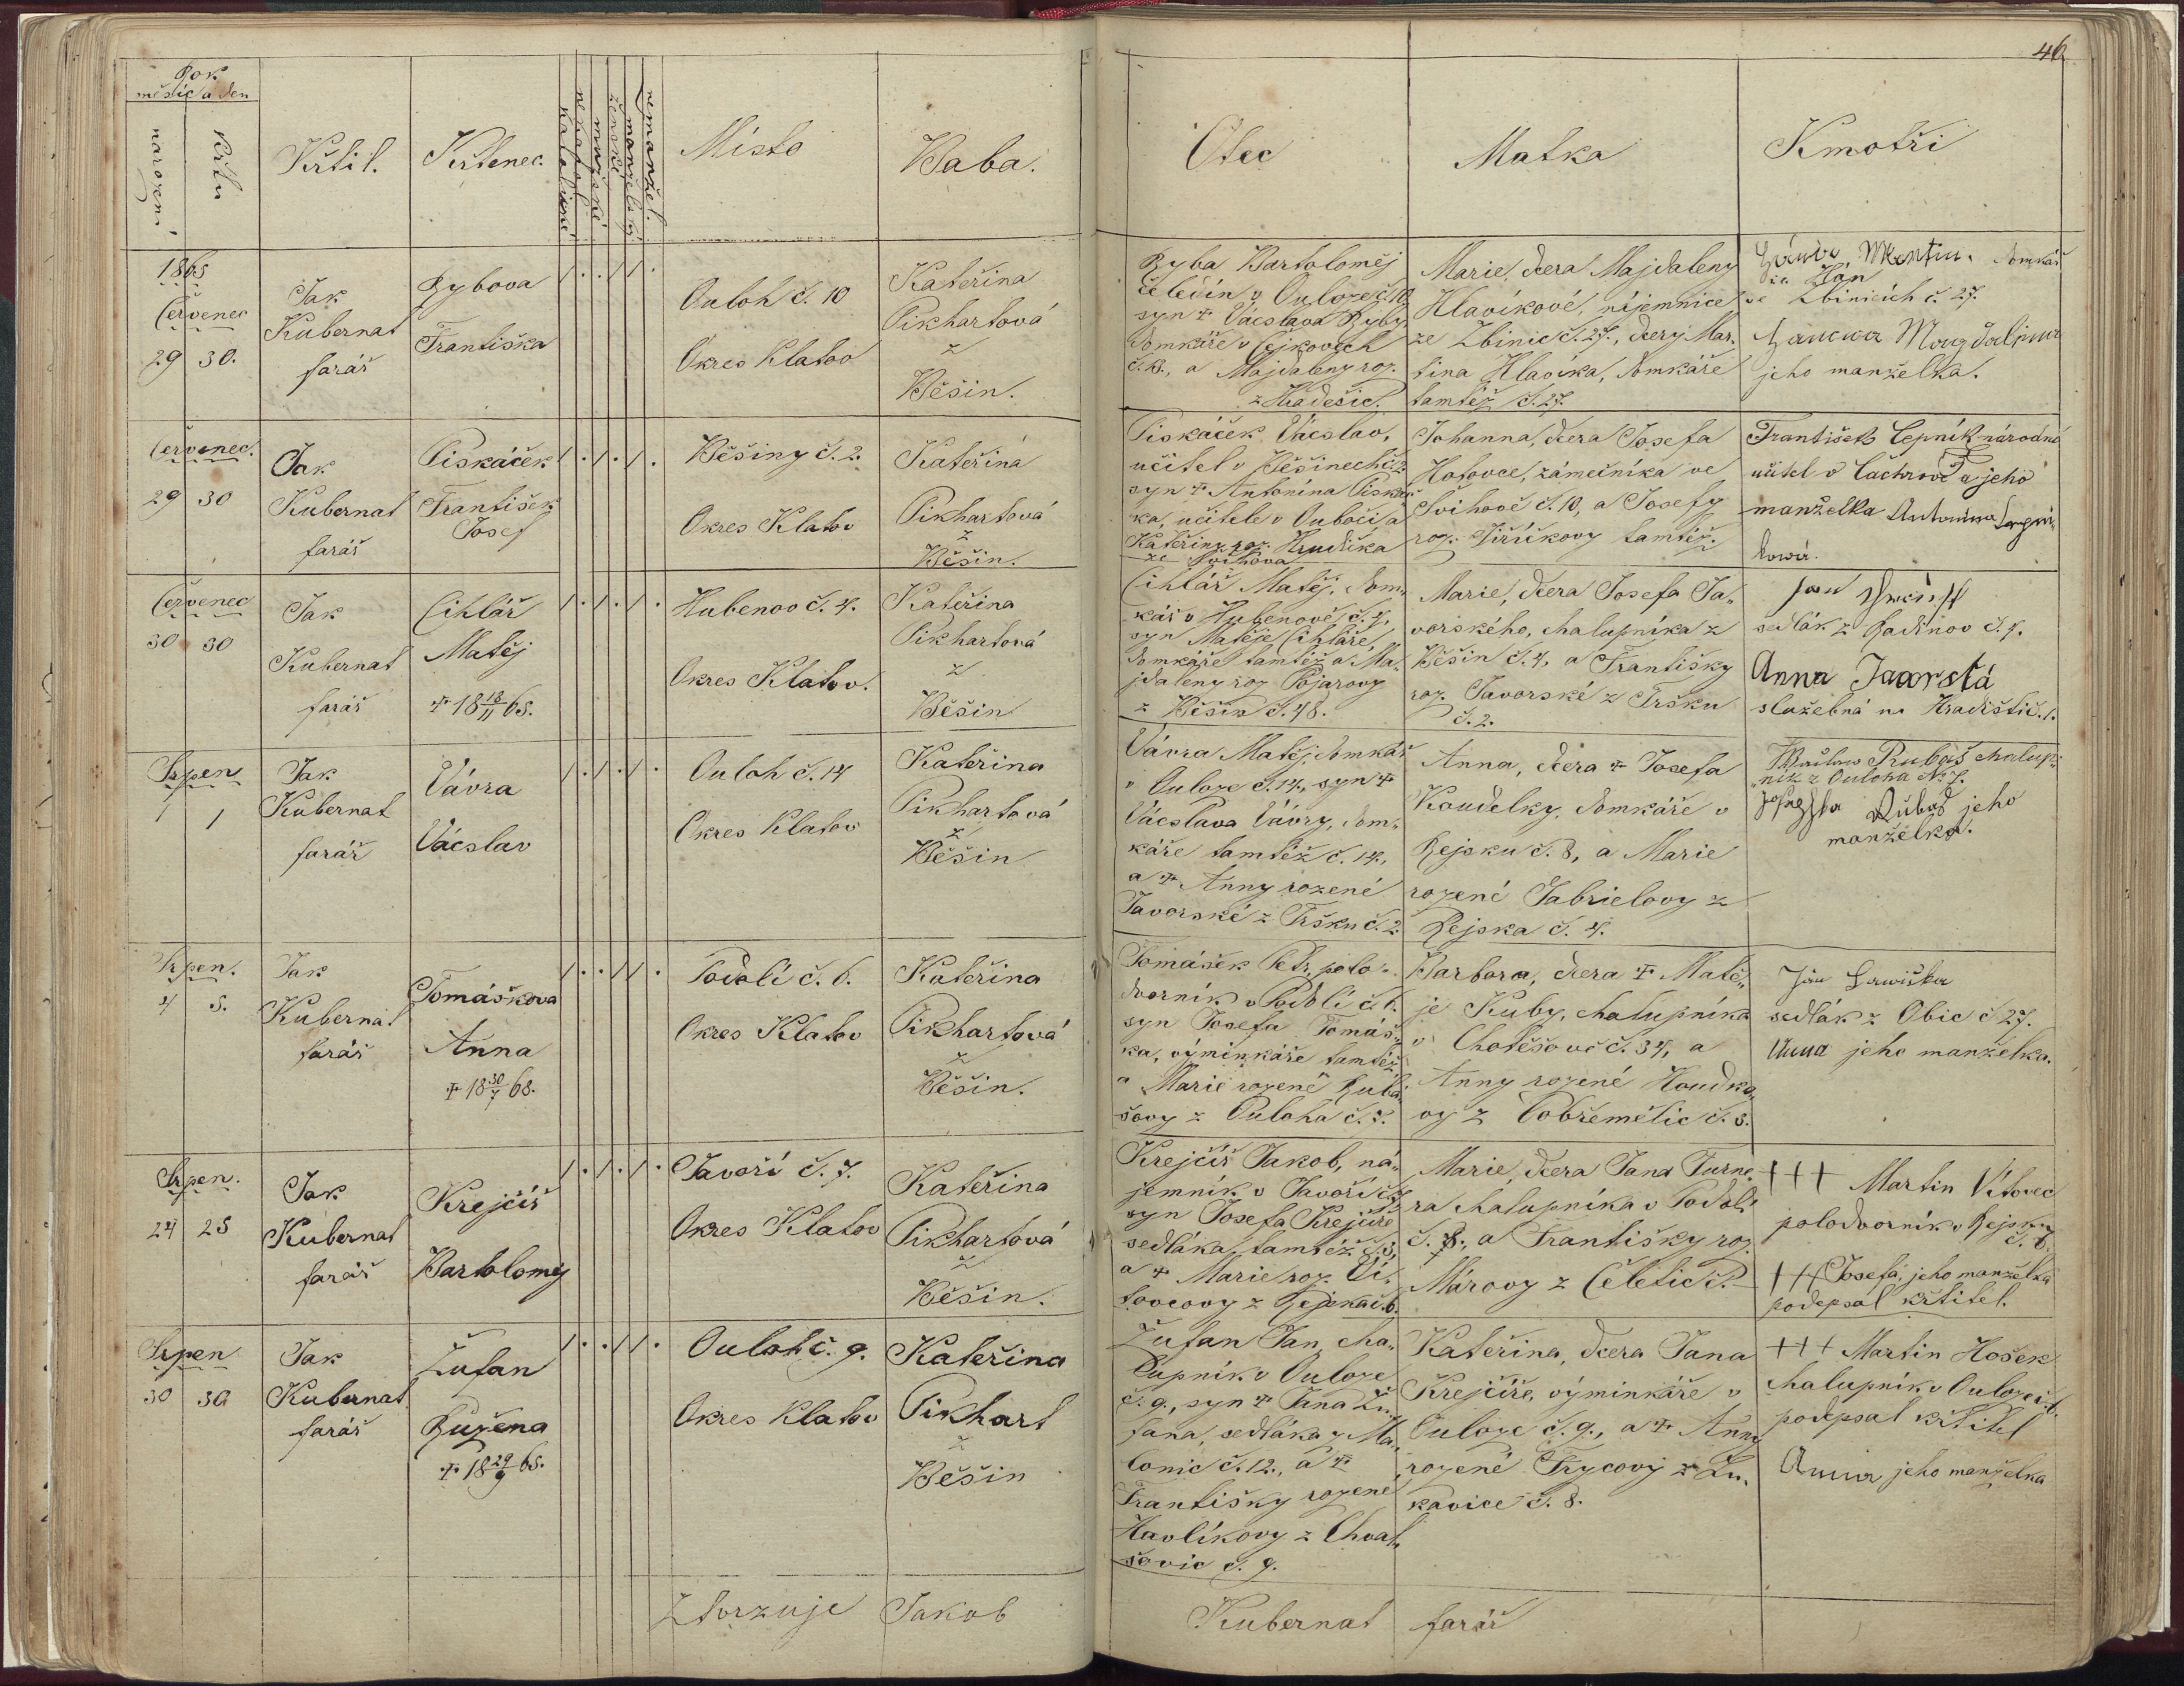 46
Rok
měsíc a den
narození
křtu
Křtil.
Křtenec.
katolické
nekatol.
mužské
ženské
manželské
nemanžel.
Místo
Baba.
Otec
Matka
Kmotři
1865
Červenec
29 30.
Jak
Kubernat
farář
Rybova
Františka
Ouloh č. 10
Okres Klatov
Kateřina
Pikhartová
z
Běšin.
Ryba Bartoloměj
čeledín v Ouloze č. 10
syn † Václava Ryby,
domkáře v Čejkovech
č. 13., a Majdaleny roz.
z Hradešic.
Marie, dcera Majdaleny
Hlavíkové, nájemnice
ze Zbinic č. 27., dcery Mar„
tina Hlavíka, domkáře
tamtéž č. 27.
Martin domkář
ve Zbinicích č. 27.
Magdalena
jeho manželka.
Červenec.
29 30
Jak
Kubernat
farář
Piskáček
František
Josef
Běšiny č. 2.
Okres Klatov
Kateřina
Pikhartová
z
Běšin.
Piskáček Václav,
učitel v Běšinech č. 2.
syn † Antonína Piská„
ka, učitele v Ouboči a
Kateřiny roz. Hrudička
ze Švihova
Johanna, dcera Josefa
Hotovce, zámečníka ve
Švihově č. 10, a Josefy
roz. Jiříkovy tamtéž.
František Čepník národní
učitel v Čachrově a jeho
manželka Antonína
Červenec
30 30
Jak
Kubernat
farář
Cihlář
Matěj
† 18 18/11 65.
Hubenov č. 4.
Okres Klatov.
Kateřina
Pikhartová
z
Běšin
Cihlář Matěj, dom„
kář v Hubenově č. 4,
syn Matěje Cihláře,
domkáře tamtéž a Ma„
jdaleny roz Pojarovy
z Běšin č. 48.
Marie, dcera Josefa Ja„
vorského, chalupníka z
Běšin č. 4, a Františky
roz. Javorské z Tršku
č. 2.
Jan
sedlák z Radinov č. 4.
Anna Javorská
služebná na Hradišti č. 1.
Srpen
1 1
Jak
Kubernat
farář
Vávra
Václav
Ouloh č. 14
Okres Klatov
Kateřina
Pikhartová
z
Běšin
Vávra Matěj, domkář
v Ouloze č. 14., syn †
Václava Vávry, dom„
káře tamtéž č. 14.,
a † Anny rozené
Javorské z Tršku č. 2.
Anna, dcera † Josefa
Koudelky, domkáře v
Rejsku č. 8, a Marie
rozené Gabrielovy z
Rejska č. 4.
Rubaš chalup„
ník z Ouloha No 7.
Rubaš jeho
manželka.
Srpen.
4 5.
Jak
Kubernat
farář
Tomáškova
Anna
† 18 30/7 68.
Podolí č. 6.
Okres Klatov
Kateřina
Pikhartová
z
Běšin.
Tomášek Petr, polo„
dvorník v Podolí č. 6.
syn Josefa Tomáš„
ka, výminkáře tamtéž
a Marie rozené Ruba„
šovy z Ouloha č. 7.
Barbora, dcera † Matě„
je Kuby, chalupníka
v Chotěšově č. 34, a
Anny rozené Houdko„
vy z Dobřemělic č. 8.
Jan
sedlák z Obic č 27.
Anna jeho manželka.
Srpen.
24 25
Jak
Kubernat
farář
Krejčíř
Bartoloměj
Javoří č. 7.
Okres Klatov
Kateřina
Pikhartová
z
Běšin.
Krejčíř Jakob, ná„
jemník v Javoří č. 7
syn Josefa Krejčíře
sedláka tamtéž č. 3,
a † Marie roz. Ví„
tovcovy z Rejska č. 6.
Marie, dcera Jana Turne„
ra chalupníka v Podolí
č. 8., a Františky roz.
Márovy z Čeletic č.
+++ Martin Vítovec
polodvorník v Rejsku
č. 6.
+++ Josefa, jeho manželka
podepsal křtitel.
Srpen
30 30
Jak
Kubernat
farář
Žufan
Růžena
† 18 29/9 65.
Ouloh č. 9.
Okres Klatov
Kateřina
Pikhart
z
Běšin
Žufan Jan, cha„
lupník v Ouloze
č. 9., syn † Jana Žu„
fana, sedláka z Ma„
lonic č. 12., a †
Františky rozené
Havlíkovy z Chval„
šovic č. 9.
Kateřina, dcera Jana
Krejčíře, výminkáře v
Ouloze č. 9., a † Anny
rozené Frycovy z Lu„
kavice č. 8.
+++ Martin Hošek
chalupník v Ouloze č. 6.
podepsal křtitel
Anna jeho manželka
Ztvrzuje Jakob Kubernat farář